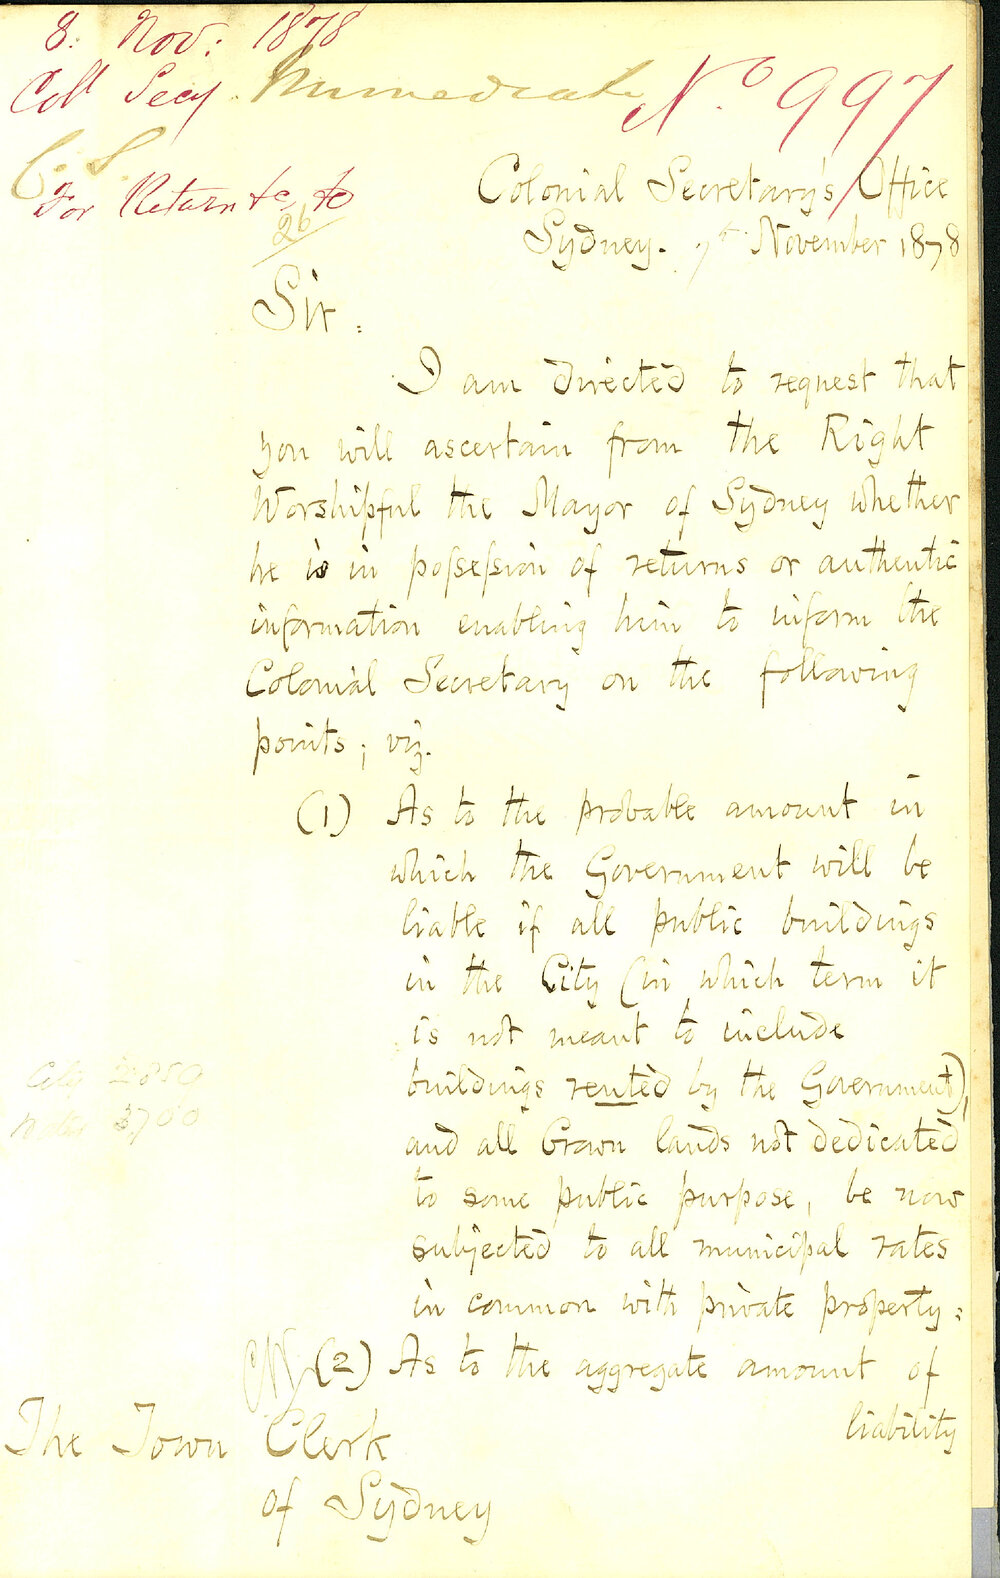 8. Nov: 1878
Coll Secy. Immediate
No 997
C. S.
For Return &c to
26
Colonial Secretary's Office
Sydney. 7th November 1878
Sir.
I am directed to request that
you will ascertain from the Right
Worshipful the Mayor of Sydney whether
he is in possession of returns or authentic
information enabling him to inform the
Colonial Secretary on the following
points; viz.
(1) As to the probable amount in
which the Government will be
liable if all public buildings
in the City (in which term it
is not meant to include
buildings rented by the Government),
and all Crown lands not dedicated
to some public purpose, be now
subjected to all municipal rates
in common with private property:
City 2850
3700
(2) As to the aggregate amount of
liability
The Town Clerk
of Sydney